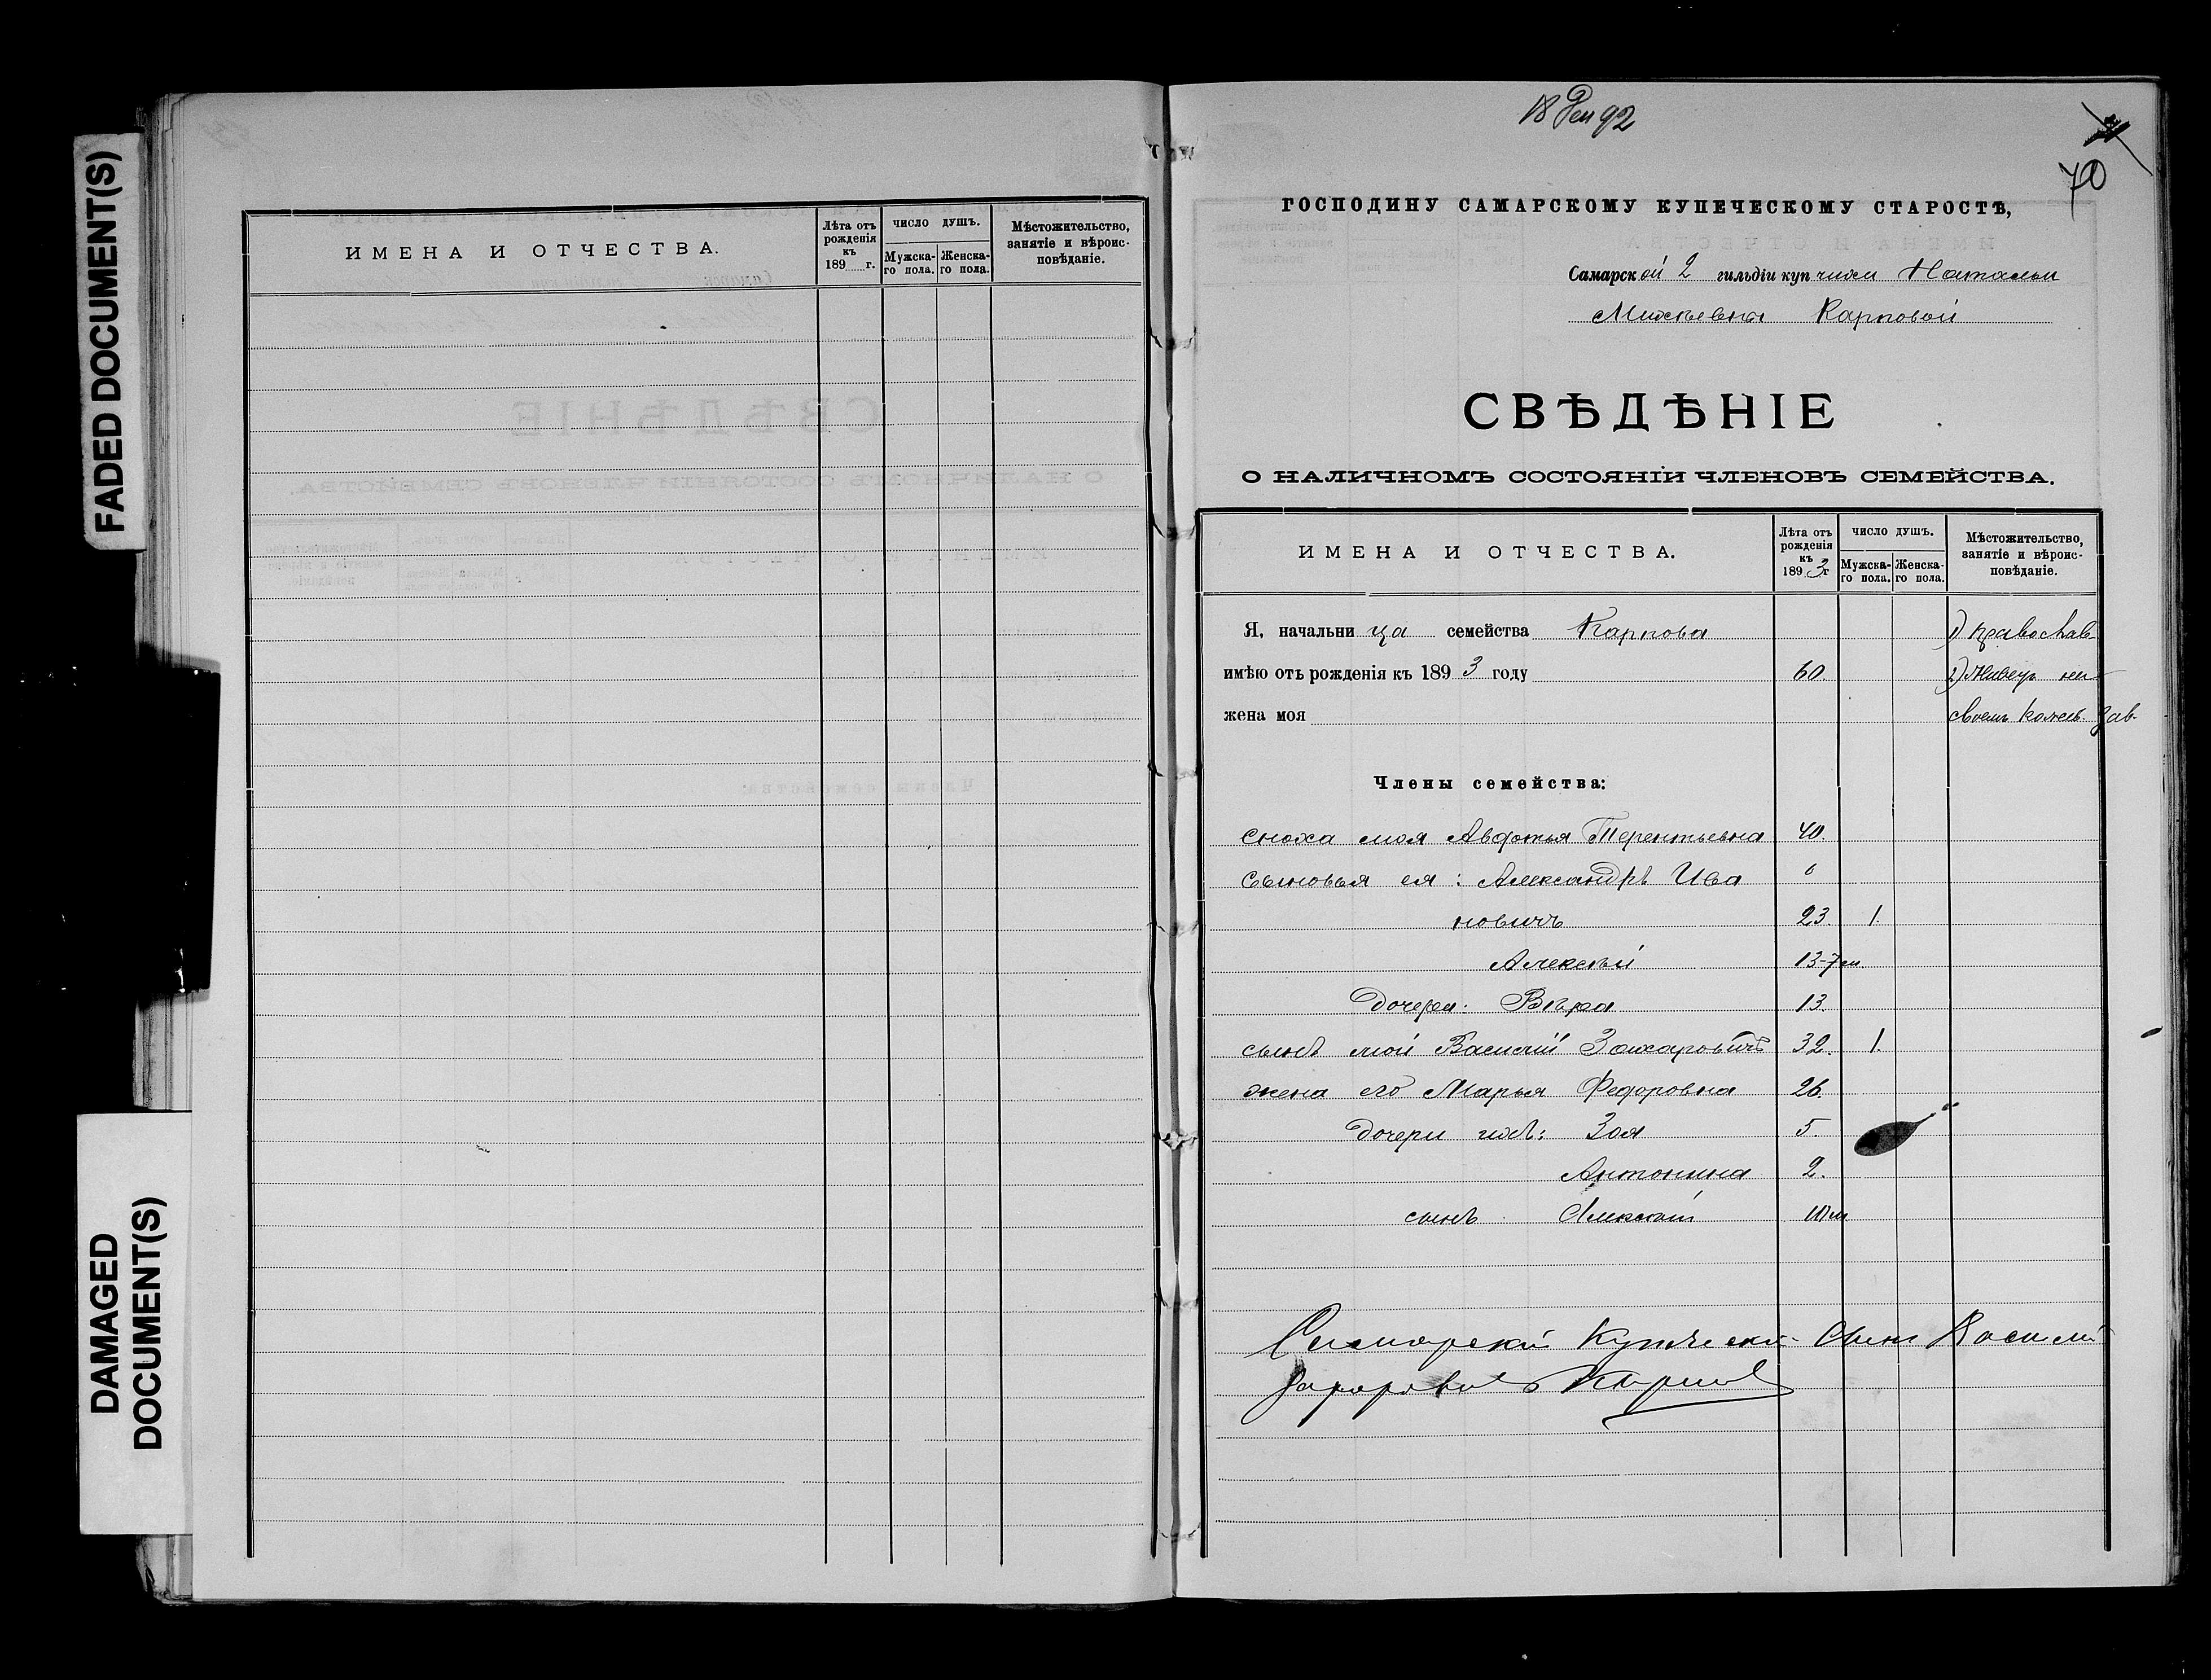 FADED DOCUMENT(S)
DAMAGED
DOCUMENT(S)
ИМЕНА И ОТЧЕСТВА.
Лѣта отъ рожденія къ 189 г.
ЧИСЛО ДУШЪ.
Мужска-го пола.
Женска-го пола.
Мѣстожительство, занятіе и вѣроис-повѣданіе.
18 Ген 92
70
ГОСПОДИНУ САМАРСКОМУ КУПЕЧЕСКОМУ СТАРОСТѢ,
Самарской 2 гильдіи купчихи Натальи
Михѣевны Карповой
СВѢДѢНІЕ
О НАЛИЧНОМЪ СОСТОЯНІИ ЧЛЕНОВЪ СЕМЕЙСТВА.
ИМЕНА И ОТЧЕСТВА.
Лѣта отъ рожденія къ 1893 г
ЧИСЛО ДУШЪ.
Мужска-го пола.
Женска-го пола.
Мѣстожительство, занятіе и вѣроис-повѣданіе.
Я, начальница семейства Карпова 1) православ.
имѣю отъ рожденія къ 1893 году 60. 2) Живетъ на
жена моя своемъ кожев. зав.
Члены семейства:
сноха моя Авдотья Терентьевна 40.
сыновья ея: Александръ Ива
новичъ 23. 1.
Алексѣй 13-7 м.
дочерея: Вѣра 13.
сынъ мой Василій Захаровичъ 32. 1.
жена его Марья Федоровна 26.
дочери ихъ: Зоя 5.
Антонина 2.
сынъ Алексѣй 10 м
Самарский Купческ. Сынъ Василий
Захаровичъ Карповъ